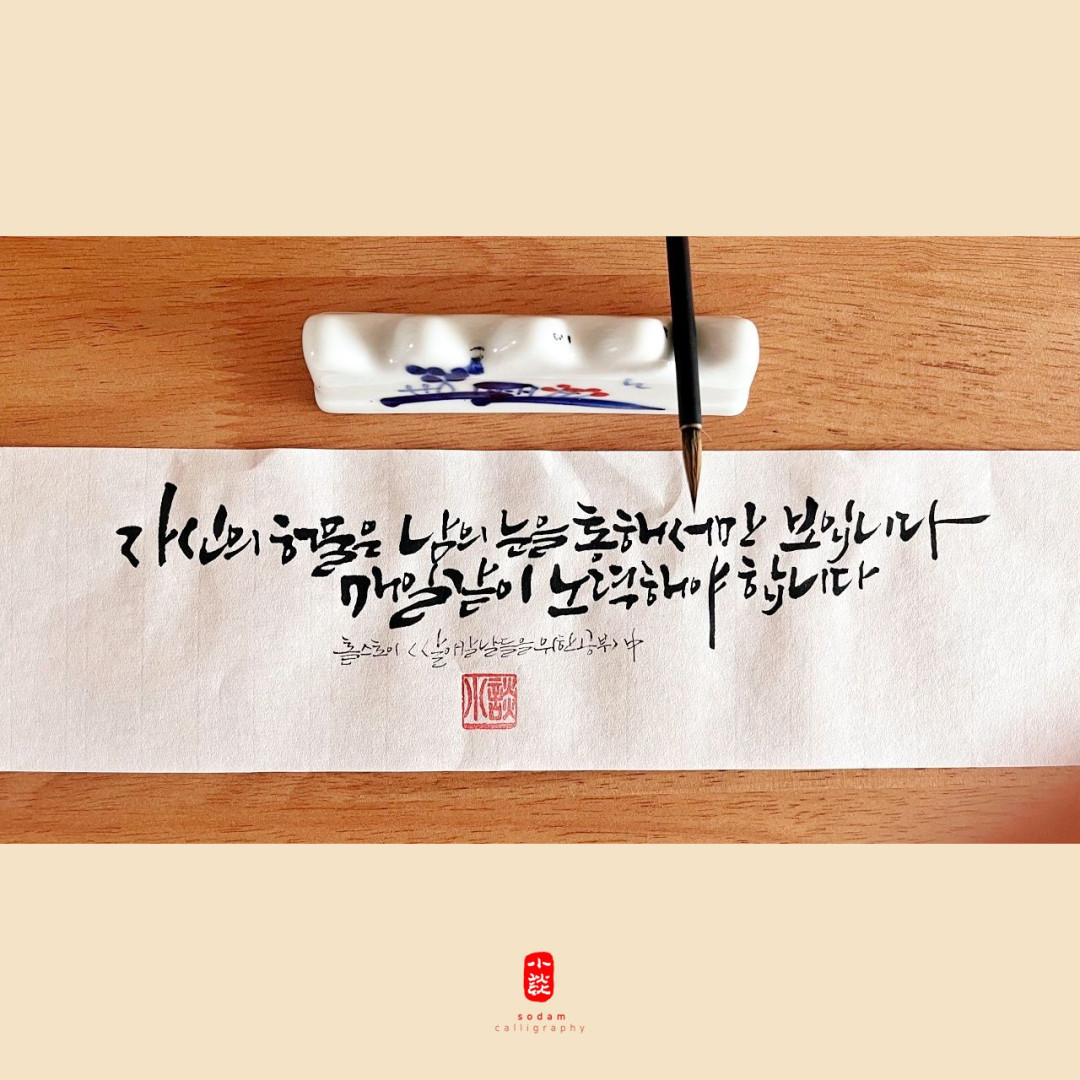 자신의 허물은 남의 눈을 통해서만 보입니다
매일같이 노력해야 합니다
톨스토이 <<살아갈 날들을 위한 공부> 中
小談
小談
sodam
calligraphy